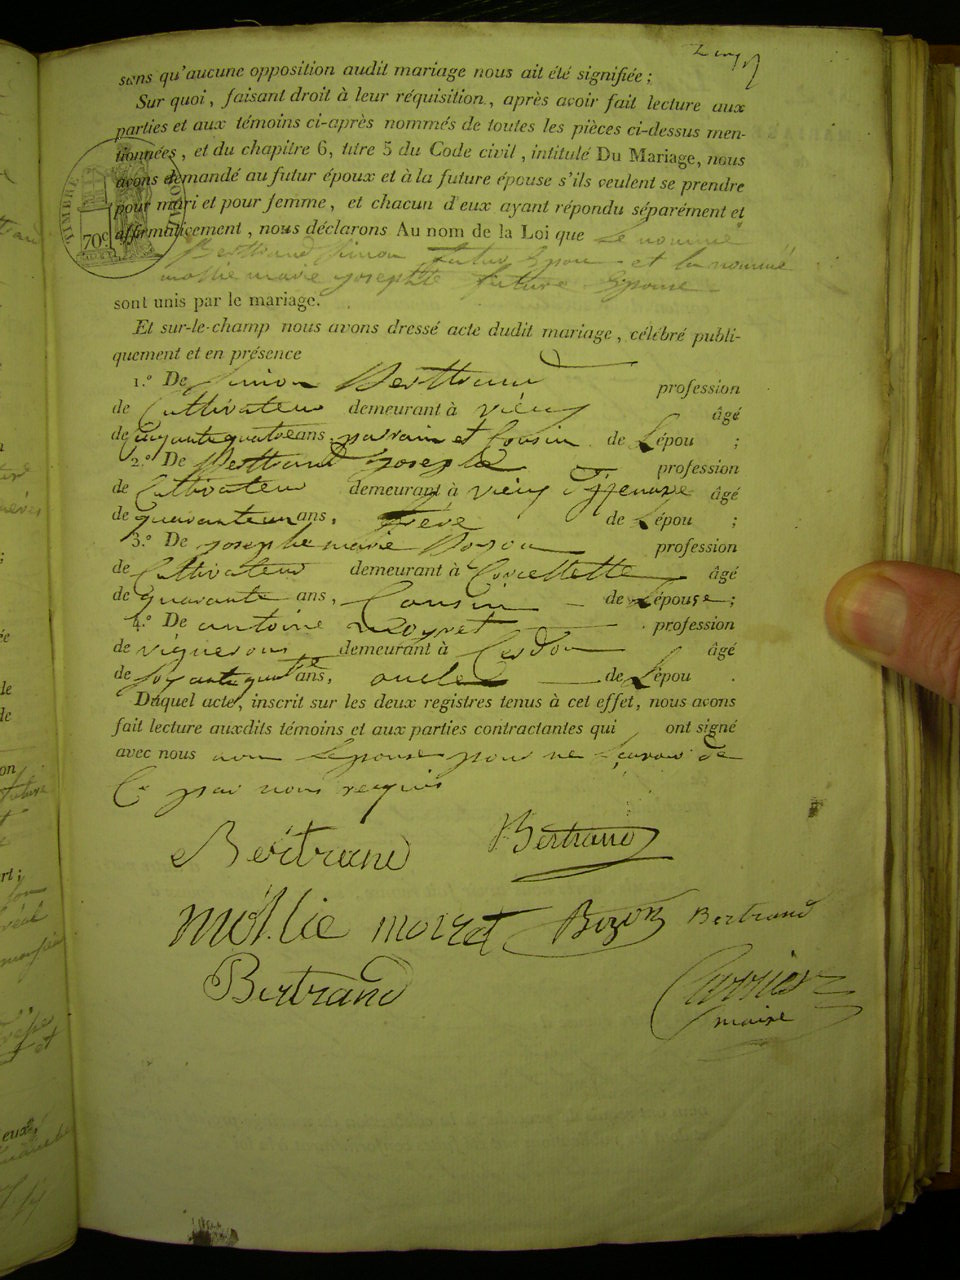 sans qu'aucune opposition audit mariage nous ait été signifiée ;
Sur quoi, faisant droit à leur réquisition, après avoir fait lecture aux
parties et aux témoins ci-après nommés de toutes les pièces ci-dessus men-
tionnées, et du chapitre 6, titre 5 du Code civil, intitulé Du Mariage, nous
avons demandé au futur époux et à la future épouse s'ils veulent se prendre
pour mari et pour femme, et chacun d'eux ayant répondu séparément et
affirmativement, nous déclarons Au nom de la Loi que Le nommé
Berttrand Simon futur Epou et la nommé
mollie marie josephtte future Epouse
sont unis par le mariage.
Et sur-le-champ nous avons dressé acte dudit mariage, célébré publi-
quement et en présence
1.° De Simon Berttrand profession
de Cultivateur demeurant à vieu âgé
de ans, parrain et Cousin de Lépou ;
2.° De Berttrand Joseph profession
de Cultivateur demeurant à vieu âgé
de quarante un ans, frère de Lépou ;
3.° De josephe marie profession
de Cultivateur demeurant à Corcellette âgé
de quarante ans, Cousin de Lépouse ;
4.° De antoine moyret profession
de vigneron demeurant à Cerdon âgé
de ans, oncle de Lépou .
Duquel acte, inscrit sur les deux registres tenus à cet effet, nous avons
fait lecture auxdits témoins et aux parties contractantes qui ont signé
avec nous non Lepouse pour ne savoir de
Ce par nous requis
Bertrand Bertrand
Mollie moiret Bozon Bertrand
Bertrand
Carrier
maire
TIMBRE ROYAL
70c